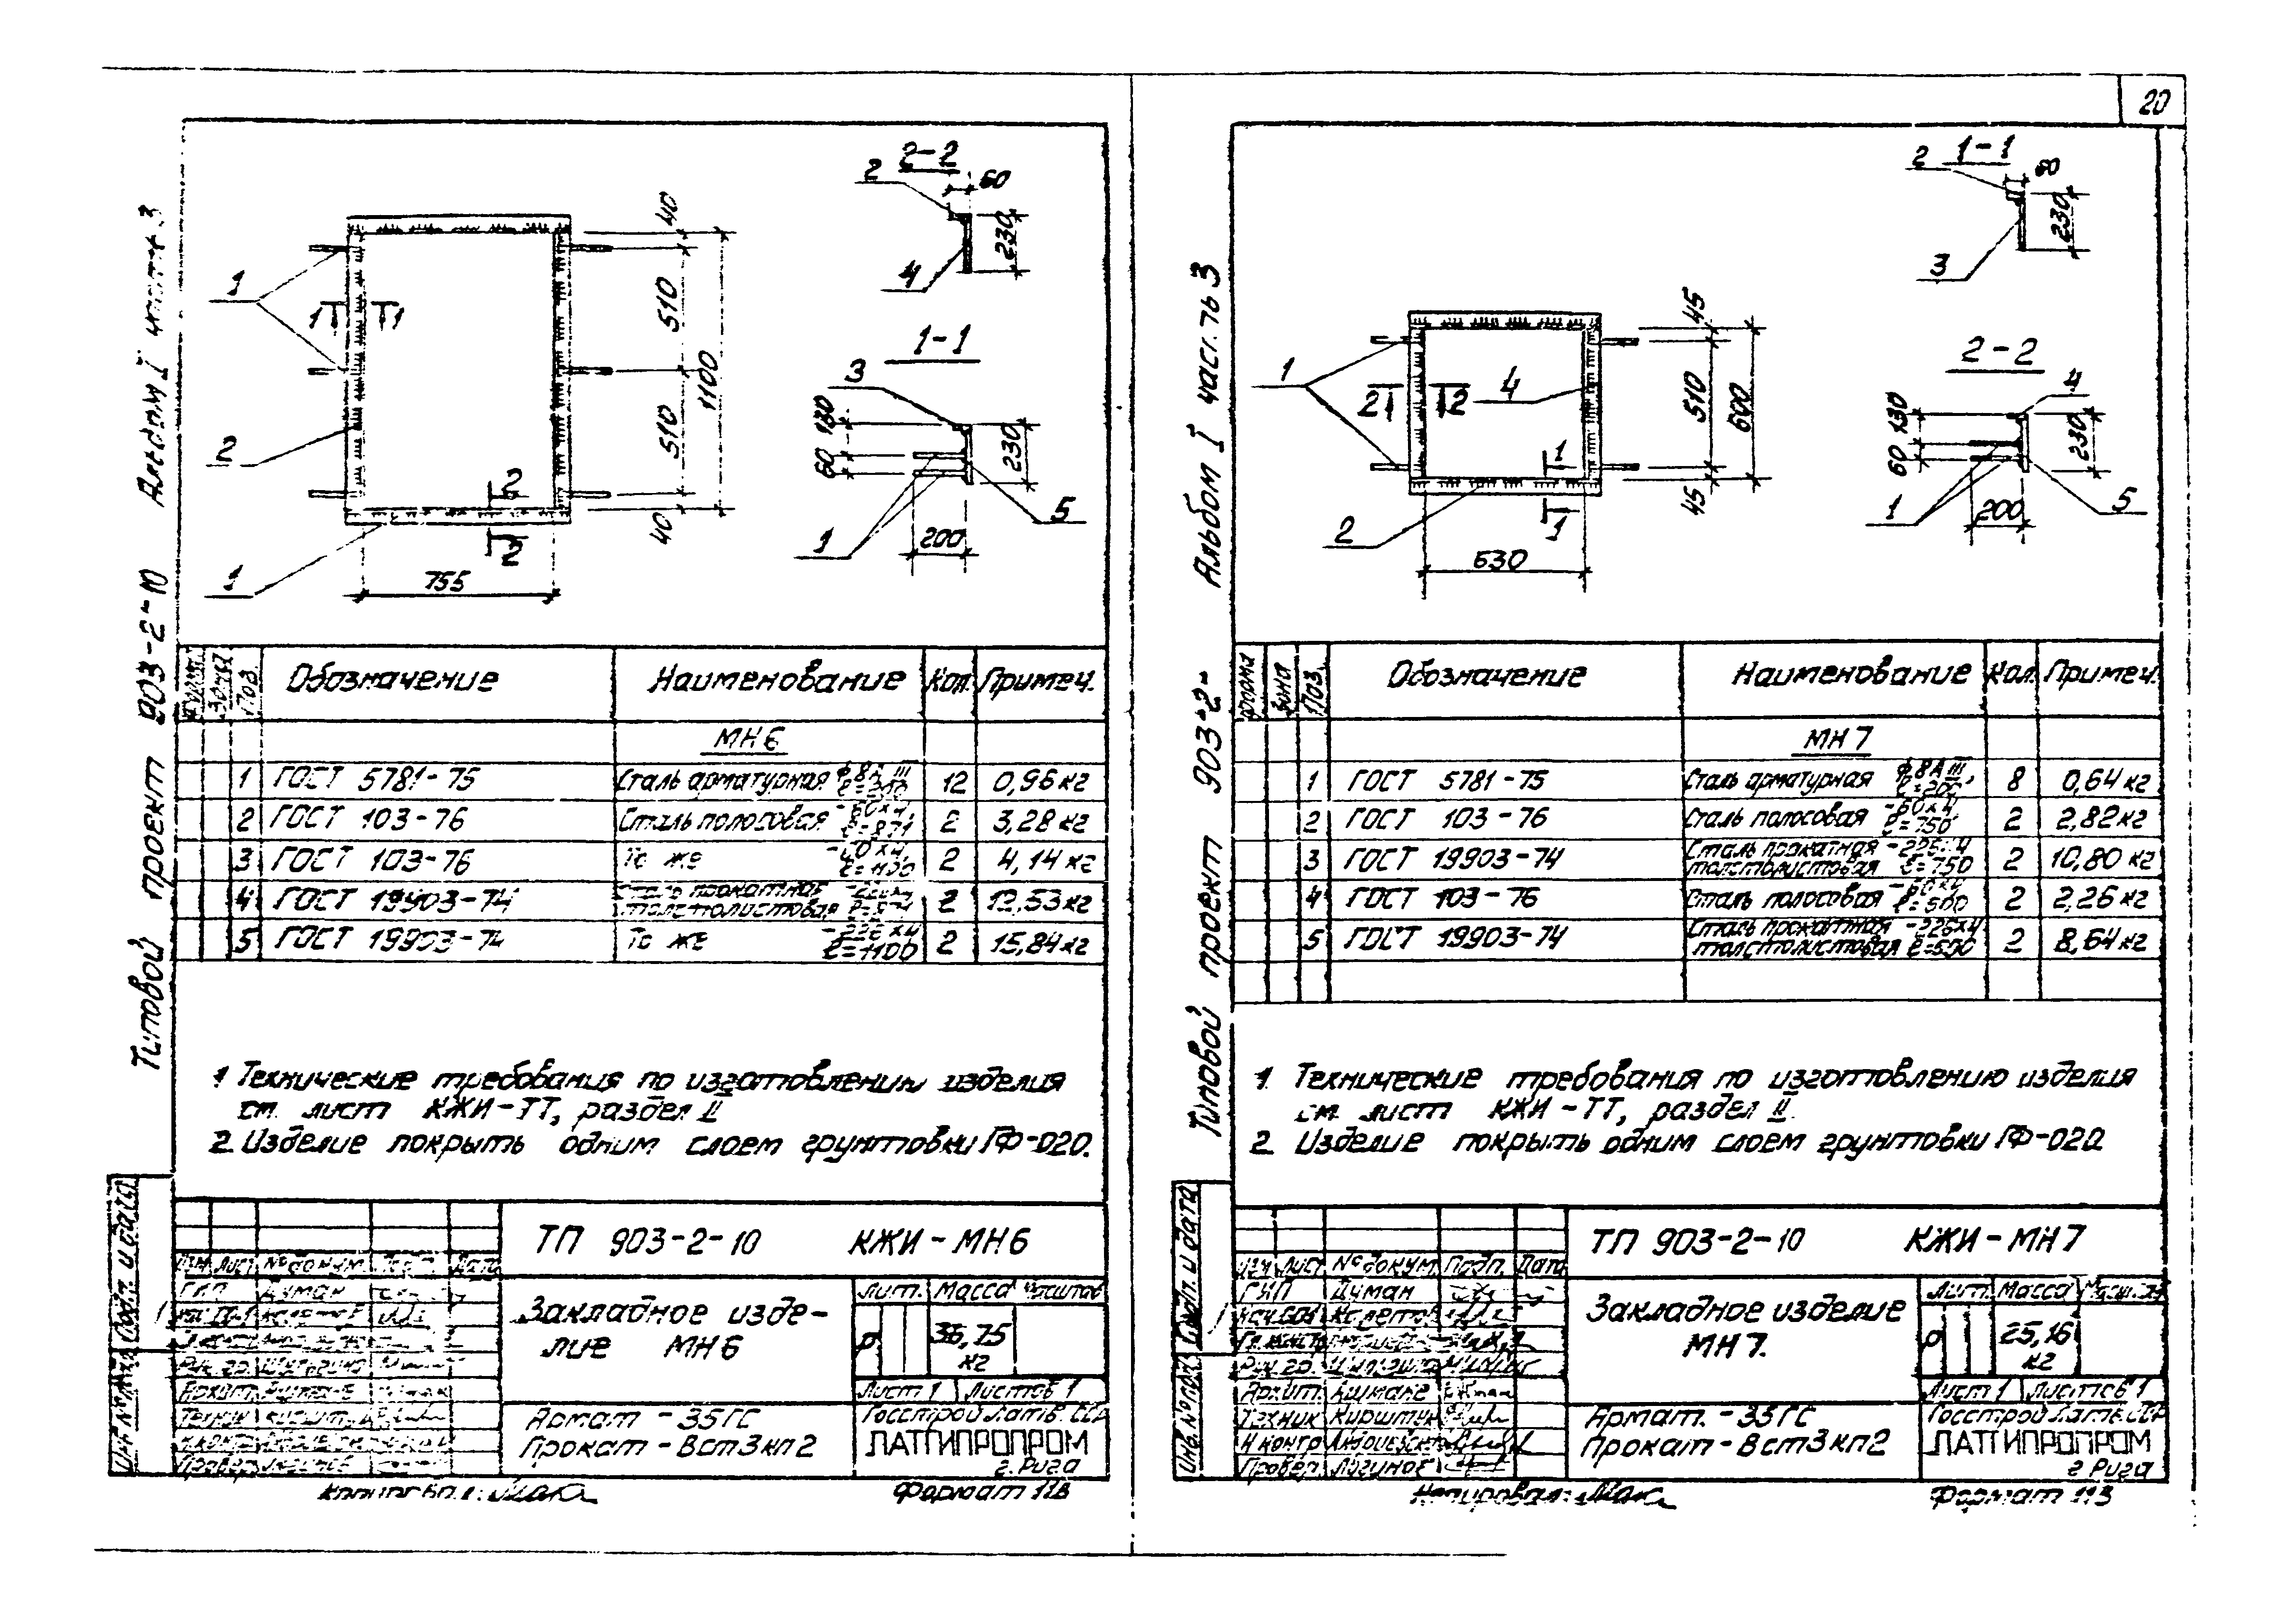 20
Типовой проект 903-2-10 Альбом I часть 3
2-2
2
60
230
4
1-1
3
130
60
230
1
200
5
1
1 1
2
2
2
1
40
510
510
1100
40
755
Зона Поз. Обозначение Наименование Кол. Примеч.
МН6
1 ГОСТ 5781-75 Сталь арматурная ф8АIII ℓ=200 12 0,96 кг
2 ГОСТ 103-76 Сталь полосовая -60х4 ℓ=871 2 3,28 кг
3 ГОСТ 103-76 То же -60х4 ℓ=1100 2 4,14 кг
4 ГОСТ 19903-74 Сталь прокатная толстолистовая 2 12,53 кг
5 ГОСТ 19903-74 То же -226х4 ℓ=1100 2 15,84 кг
1 Технические требования по изготовлению изделия
см. лист КЖИ-ТТ, раздел II
2. Изделие покрыть одним слоем грунтовки ГФ-020.
ТП 903-2-10 КЖИ-МН6
Изм Лист № докум. Подп. Дата
ГИП Думан
Закладное изде-
лие МН6
Лит. Масса Масштаб
Р 36,75
кг
Лист 1 Листов 1
Рук. гр.
Архит.
Техник
Н.контр.
Провер.
Армат - 35ГС
Прокат - Вст3кп2
Госстрой Латв. ССР
ЛАТГИПРОПРОМ
г. Рига
Инв № подл. Подп. и дата
Копировал:
Формат 11В
Типовой проект 903-2- Альбом I часть 3
1-1
2
60
230
3
2-2
4
130
60
230
1
200
5
1
2 2
4
1
1
2
45
510
600
45
630
Форма Зона Поз. Обозначение Наименование Кол. Примеч.
МН7
1 ГОСТ 5781-75 Сталь арматурная ф8АIII, ℓ=200 8 0,64 кг
2 ГОСТ 103-76 Сталь полосовая -60х4 ℓ=750 2 2,82 кг
3 ГОСТ 19903-74 Сталь прокатная толстолистовая -226х4 ℓ=750 2 10,80 кг
4 ГОСТ 103-76 Сталь полосовая -60х4 ℓ=600 2 2,26 кг
5 ГОСТ 19903-74 Сталь прокатная толстолистовая -226х4 ℓ=590 2 8,64 кг
1. Технические требования по изготовлению изделия
см. лист КЖИ-ТТ, раздел II.
2. Изделие покрыть одним слоем грунтовки ГФ-020
ТП 903-2-10 КЖИ-МН7
Изм Лист № докум. Подп. Дата
ГИП Думан
Закладное изделие
МН7.
Лит. Масса Масштаб
Р 25,16
кг
Лист 1 Листов 1
Рук. гр.
Архит.
Техник Кирштук
Н контр
Провер. Логинов
Армат. - 35ГС
Прокат - Вст3кп2
Госстрой Латв. ССР
ЛАТГИПРОПРОМ
г. Рига
Инв. № подл. Подп. и дата
Копировал:
Формат 11В